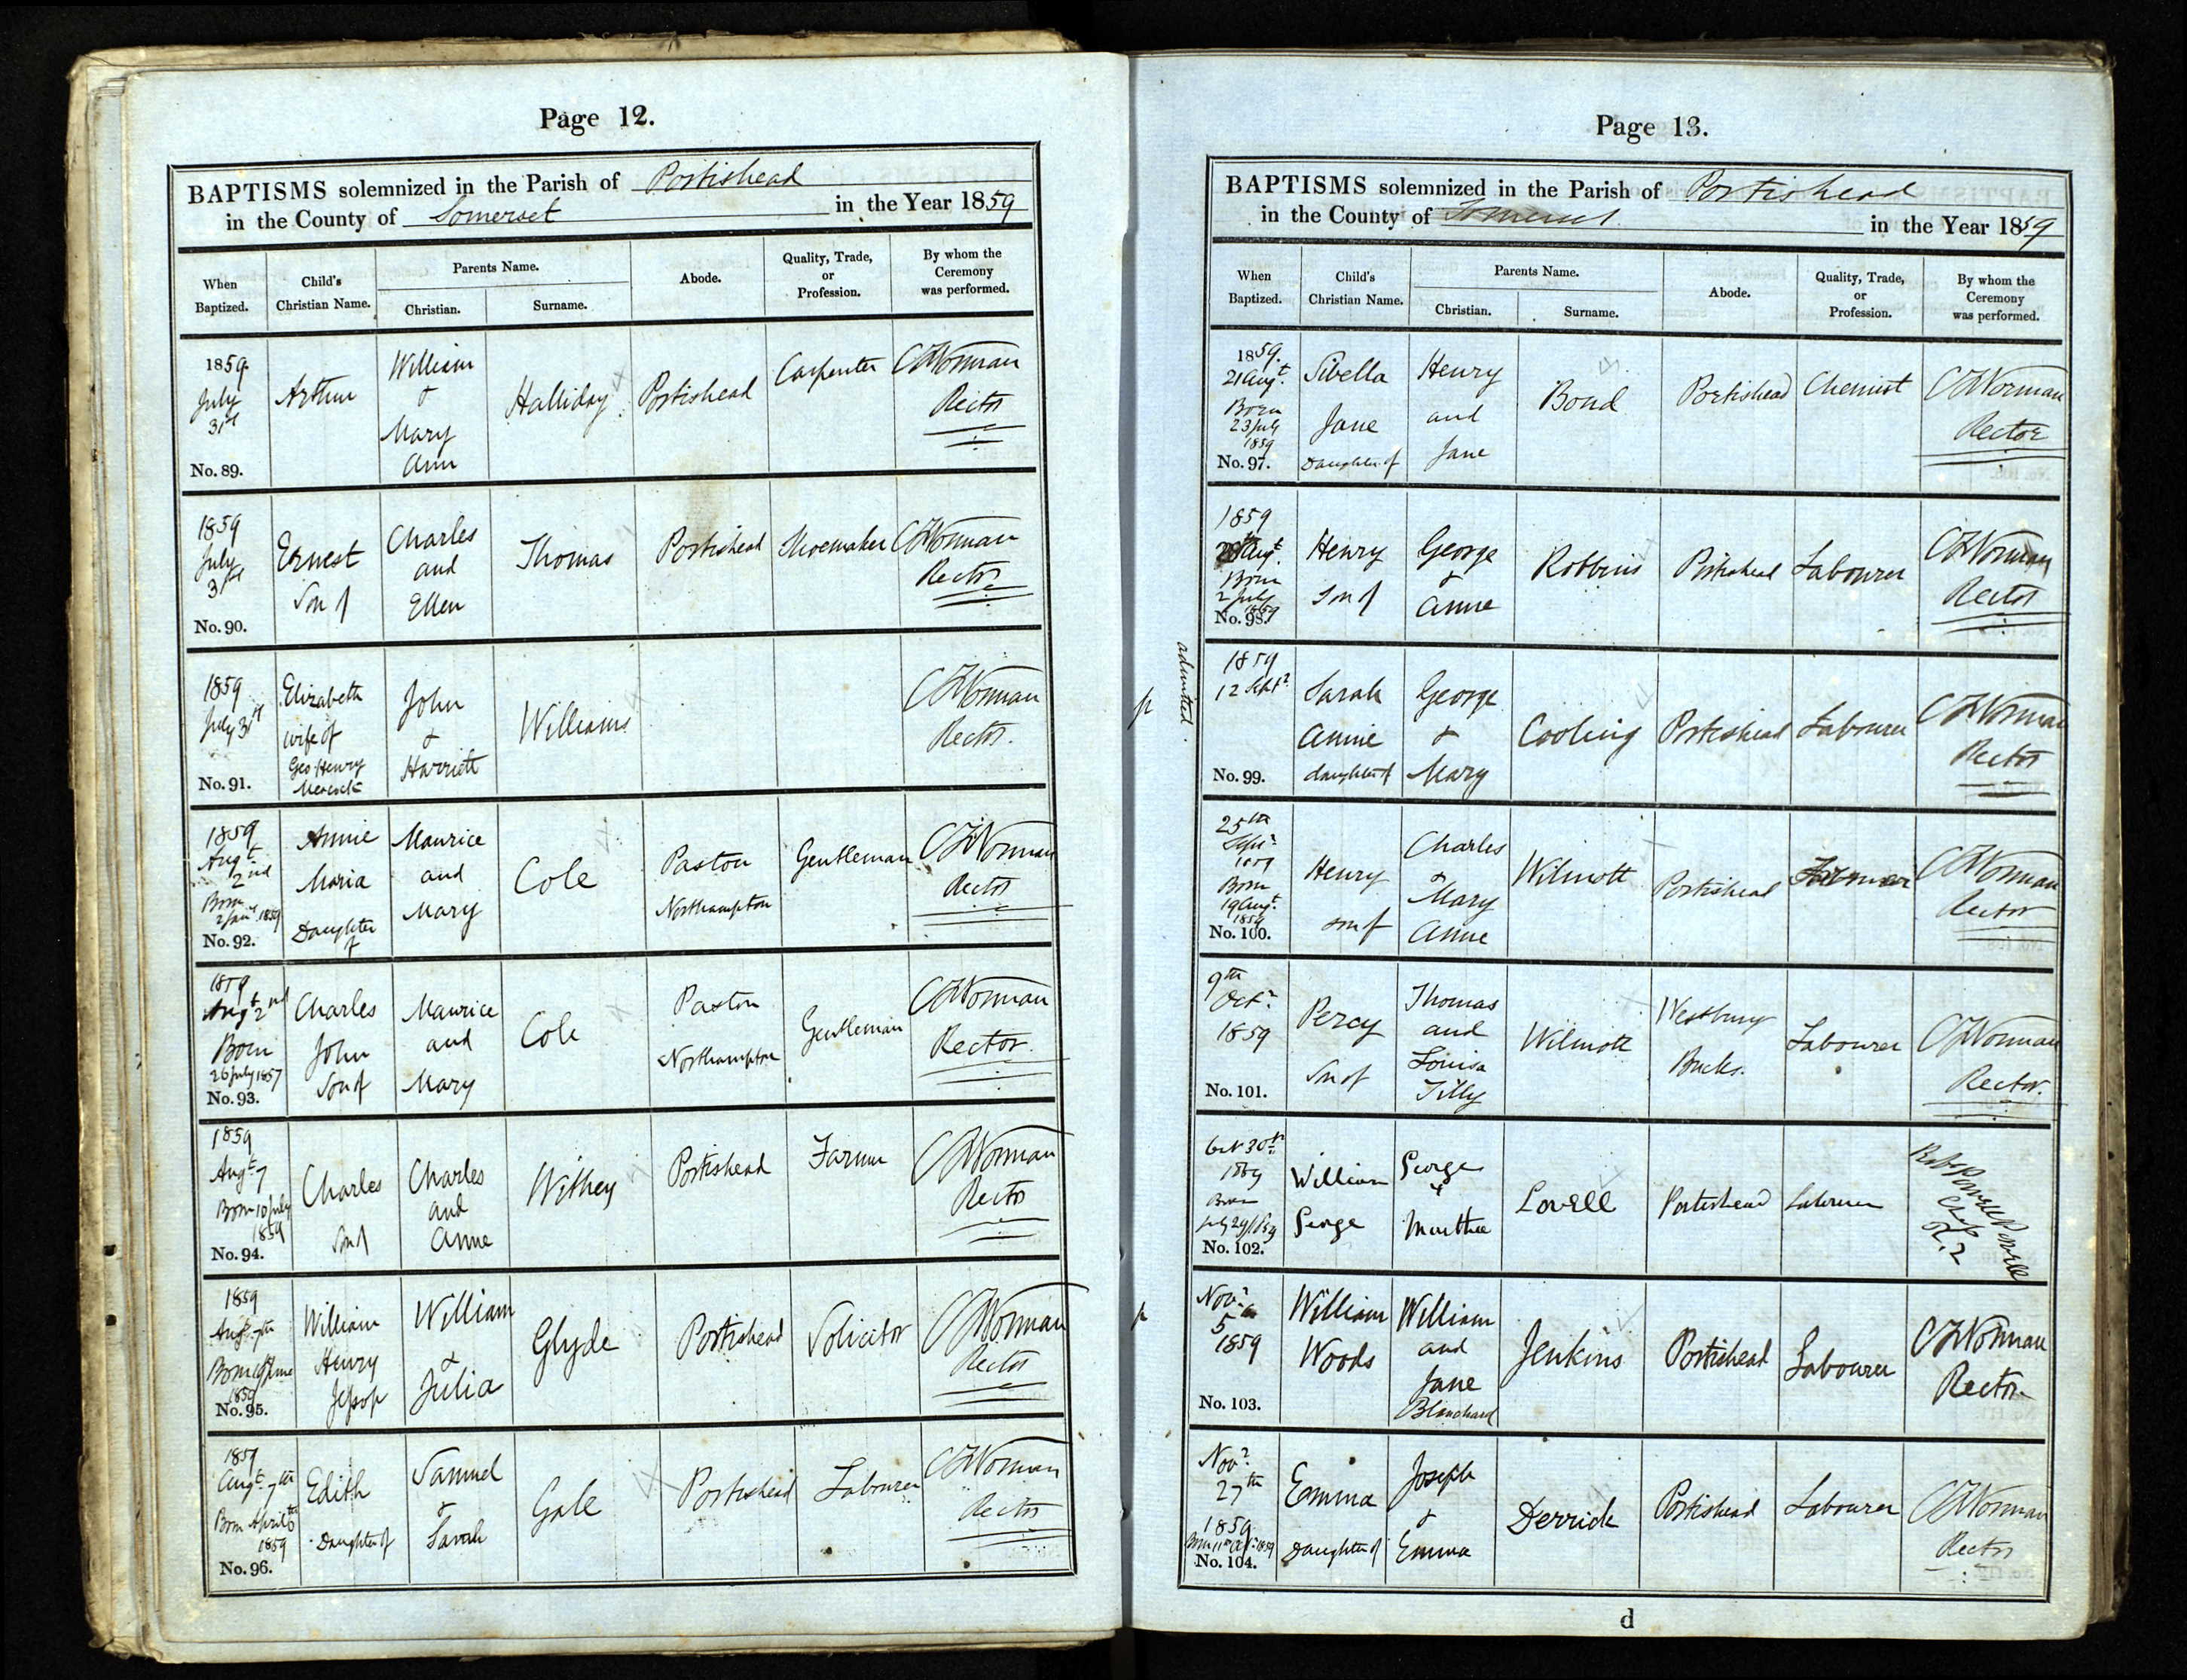 Page 12.
BAPTISMS solemnized in the Parish of Portishead
in the County of Somerset in the Year 1859
When Baptized.
Child's Christian Name.
Parents Name.
Christian.
Surname.
Abode.
Quality, Trade, or Profession.
By whom the Ceremony was performed.
1859.
July
31st
No. 89.
Arthur
William
&
Mary
Ann
Halliday
Portishead
Carpenter
C Norman
Rector
1859
July
31st
No. 90.
Ernest
Son of
Charles
and
Ellen
Thomas
Portishead
Shoemaker
C Norman
Rector
1859
July 31st
No. 91.
Elizabeth
wife of
Geo Henry
John
&
Harriett
Williams
C Norman
Rector.
1859
Augt.
2nd
Born
1859
No. 92.
Annie
Maria
Daughter
of
Maurice
and
Mary
Cole
Paston
Northampton
Gentleman
C Norman
Rector
1859
Augt 2nd
Born
26 July 1857
No. 93.
Charles
John
Son of
Maurice
and
Mary
Cole
Paston
Northampton
Gentleman
C Norman
Rector.
1859
Augt 7
Born 10 July
1859
No. 94.
Charles
Son of
Charles
and
Anne
Withey
Portishead
Farmer
C Norman
Rector
1859
Augt 7th
Born June
1859
No. 95.
William
Henry
Jessop
William
&
Julia
Glyde
Portishead
Solicitor
C Norman
Rector
1859
Augt. 7th
Born April
1859
No. 96.
Edith
Daughter of
Samuel
&
Sarah
Gale
Portishead
Labourer
C Norman
Rector
Page 13.
BAPTISMS solemnized in the Parish of Portishead
in the County of Somerset in the Year 1859
When Baptized.
Child's Christian Name.
Parents Name.
Christian.
Surname.
Abode.
Quality, Trade, or Profession.
By whom the Ceremony was performed.
1859.
21 Augt.
Born
23 July
1859
No. 97.
Sibella
Jane
Daughter of
Henry
and
Jane
Bond
Portishead
Chemist
C Norman
Rector
1859
28 Augt.
Born
2 July
1859
No. 98.
Henry
Son of
George
&
Anne
Robbins
Portishead
Labourer
C Norman
Rector
admitted.
p
1859
12 Septr
No. 99.
Sarah
Annie
daughter of
George
&
Mary
Cooling
Portishead
Labourer
C Norman
Rector
25th
Septr
1859
Born
19 Augt.
1859
No. 100.
Henry
son of
Charles
&
Mary
Anne
Wilmott
Portishead
C Norman
Rector
9th
Octr
1859
No. 101.
Percy
Son of
Thomas
and
Louisa
Tilly
Wilmott
Westbury
Bucks.
Labourer
C Norman
Rector.
Oct 30th
1859
Born
July 29/1859
No. 102.
William
George
George
&
Martha
Lovell
Portishead
Labourer
Powell
p
Novr
5th
1859
No. 103.
William
Woods
William
and
Jane
Blanchard
Jenkins
Portishead
Labourer
C Norman
Rector
Novr
27th
1859
No. 104.
Emma
Daughter of
Joseph
&
Emma
Derrick
Portishead
Labourer
C Norman
Rector
d